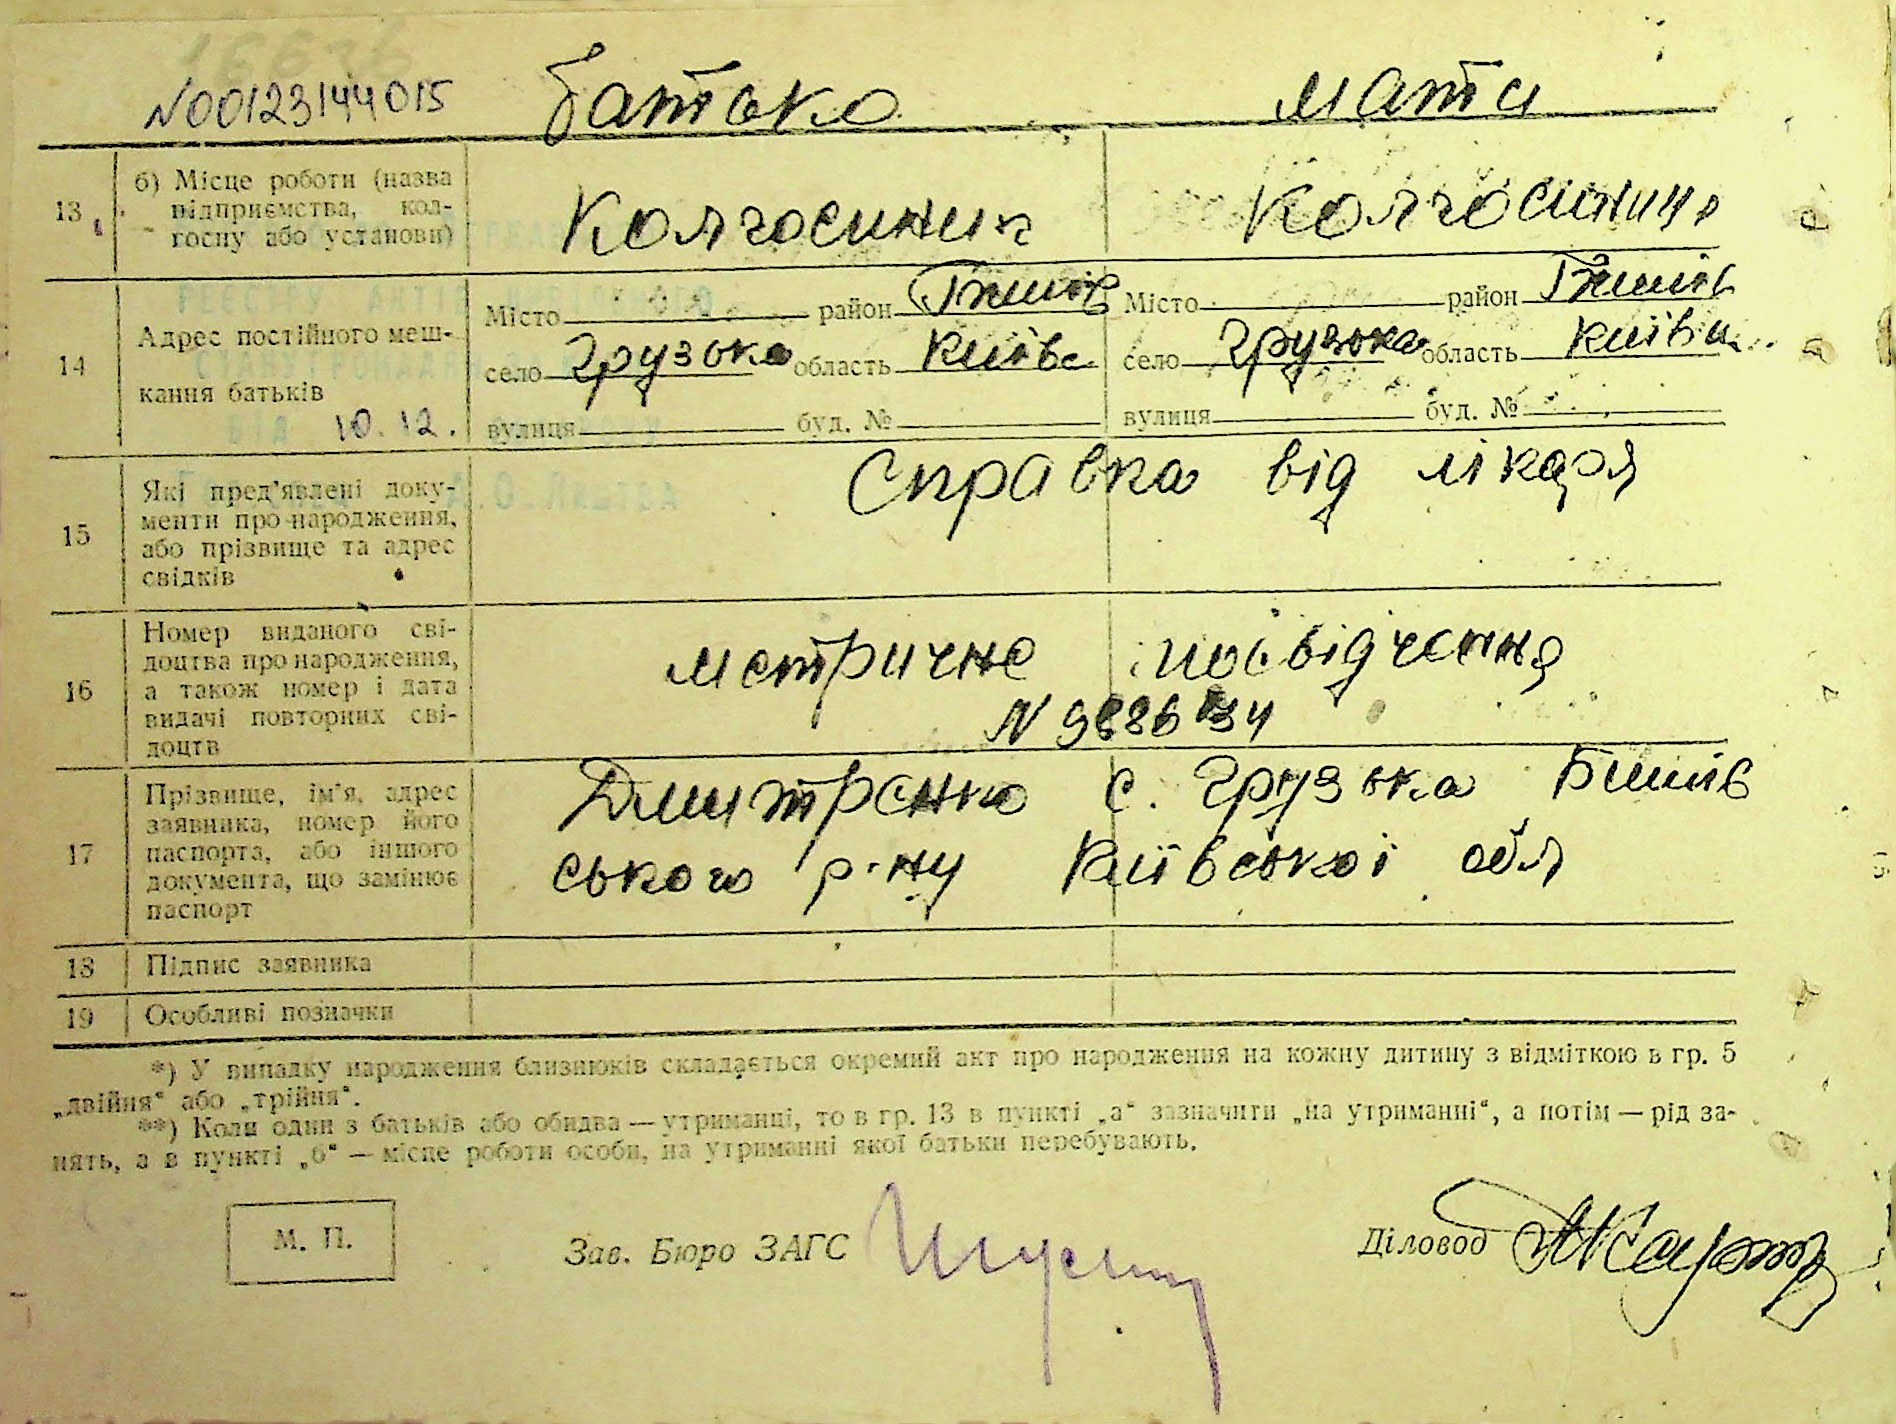 N00123144015 батько мати
13 б) Місце роботи (назва
підприємства, кол-
госпу або установи)
Колгоспник Колгоспниця
14 Адрес постійного меш-
кання батьків
10.12.
Місто район Бишів Місто район Бишів
село Грузьке область Київс село Грузьке область Київс
вулиця буд. № вулиця буд. №
15 Які пред'явлені доку-
менти про народження,
або прізвище та адрес
свідків
Справка від лікаря
16 Номер виданого сві-
доцтва про народження,
а також номер і дата
видачі повторних сві-
доцтв
метричне посвідчення
N
17 Прізвище, ім'я, адрес
заявника, номер його
паспорта, або іншого
документа, що замінює
паспорт
Дмитренко с. Грузька Бишів
ського р-ну Київської обл
18 Підпис заявника
19 Особливі позначки
*) У випадку народження близнюків складається окремий акт про народження на кожну дитину з відміткою в гр. 5
„двійня“ або „трійня“.
**) Коли один з батьків або обидва — утриманці, то в гр. 13 в пункті „а“ зазначити „на утриманні“, а потім — рід за-
нять, а в пункті „б“ — місце роботи особи, на утриманні якої батьки перебувають.
М. П. Зав. Бюро ЗАГС Діловод